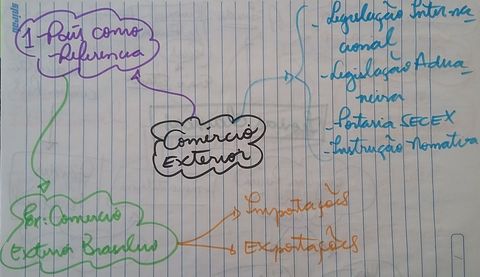 1-País como
Referência
Comércio
Exterior
-Legislação Interna
cional
-Legislação Adua
neira
-Portaria SECEX
-Instrução Normativa
Ex: Comercio
Exterior Brasileiro
Importações
Exportações